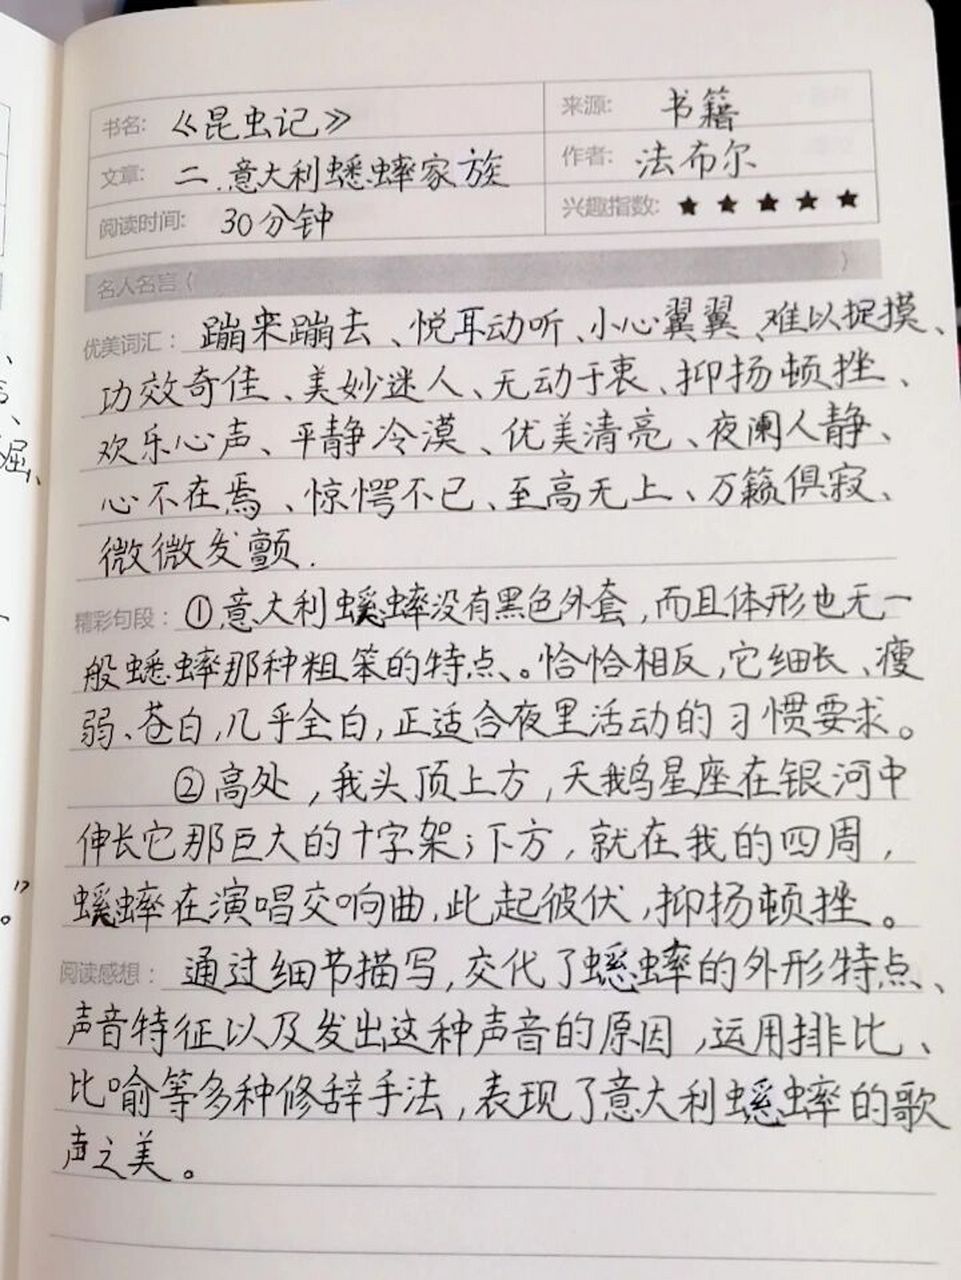 书名: 《昆虫记》 来源: 书籍
文章: 二.意大利蟋蟀家族 作者: 法布尔
阅读时间: 30分钟 兴趣指数: ★★★★★
名人名言( )
优美词汇: 蹦来蹦去、悦耳动听、小心翼翼、难以捉摸、
功效奇佳、美妙迷人、无动于衷、抑扬顿挫、
欢乐心声、平静冷漠、优美清亮、夜阑人静、
心不在焉、惊愕不已、至高无上、万籁俱寂、
微微发颤.
精彩句段: ①意大利蟋蟀没有黑色外套,而且体形也无一
般蟋蟀那种粗笨的特点、。恰恰相反,它细长、瘦
弱、苍白,几乎全白,正适合夜里活动的习惯要求。
②高处,我头顶上方,天鹅星座在银河中
伸长它那巨大的十字架;下方,就在我的四周,
蟋蟀在演唱交响曲,此起彼伏,抑扬顿挫。
阅读感想: 通过细节描写,交代了蟋蟀的外形特点、
声音特征以及发出这种声音的原因,运用排比、
比喻等多种修辞手法,表现了意大利蟋蟀的歌
声之美。